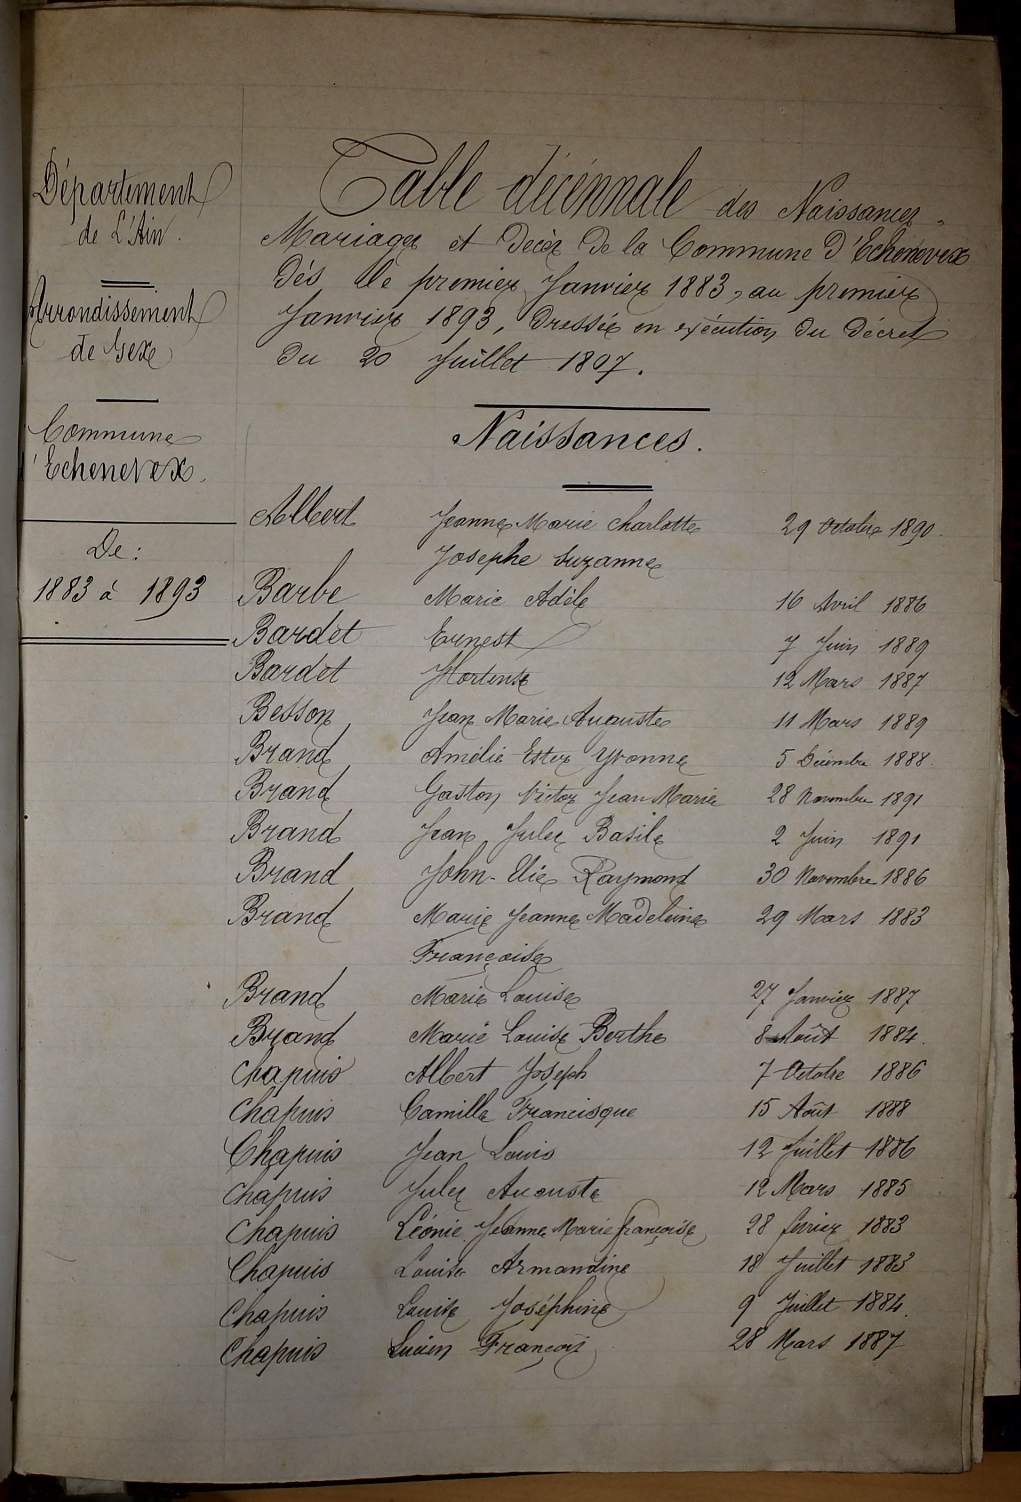 Département
de L'Ain.
Arrondissement
de Gex
Commune
d'Echenevex.
De:
1883 à 1893
Table décennale des Naissances,
Mariages et Décès de la Commune d'Echenevex
Dés le premier Janvier 1883, au premier
Janvier 1893, Dressée en exécution du Décret
du 20 Juillet 1807.
Naissances.
Albert Jeanne Marie Charlotte 29 Octobre 1890.
Josephe Suzanne
Barbe Marie Adèle 16 Avril 1886
Bardet Ernest 7 Juin 1889
Bardet Hortense 12 Mars 1887
Besson Jean Marie Auguste 11 Mars 1889
Brand Amélie Ester Yvonne 5 Décembre 1888.
Brand Gaston Victor Jean Marie 28 Novembre 1891
Brand Jean Jules Basile 2 Juin 1891
Brand John-Elie Raymond 30 Novembre 1886
Brand Marie Jeanne Madeleine 29 Mars 1883
Françoise
Brand Marie Louise 27 Janvier 1887
Brand Marie Louise Berthe 8 Août 1884.
Chapuis Albert Joseph 7 Octobre 1886
Chapuis Camille Francisque 15 Août 1888
Chapuis Jean Louis 12 Juillet 1886
Chapuis Jules Auguste 12 Mars 1885
Chapuis Léonie Jeanne Marie françoise 28 février 1883
Chapuis Louise Armandine 18 Juillet 1883
Chapuis Louise Joséphine 9 Juillet 1884.
Chapuis Lucien François 28 Mars 1887